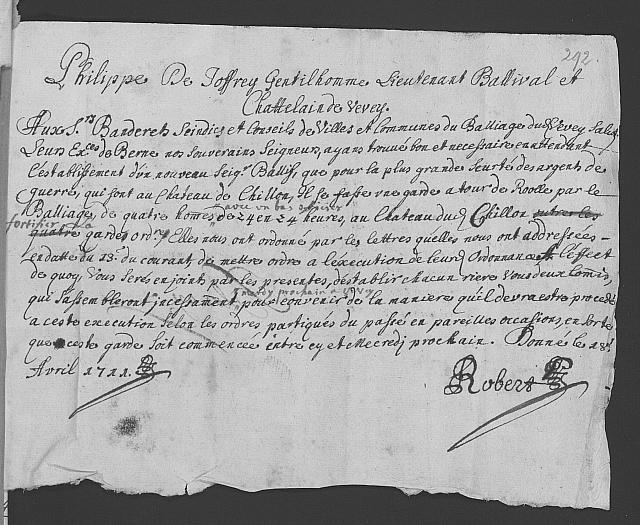 292.
Philippe De Joffrey Gentilhomme Lieutenant Ballival et
Chattelain de Vevey.
Aux S.rs Banderets Seindics et Conseils de Villes et Communes du Balliage du Vevey Salut
Leurs Ex.ces de Berne nos Souverains Seigneurs, ayans trouvé bon et necessaire en attendant
l'establissement d'un nouveau Seig.r Ballif, que pour la plus grande seurté des argents de
guerre, qui sont au Chateau de Chillon, Il se fasse une garde a tour de Roolle par le
avec un bas officier
Balliage, de quatre homes de 24 en 24 heures, au Chateau dud Chillon outre les
fortifier la
quatre gardes ord.res Elles nous ont ordonné par les lettres quelles nous ont addressées
en datte du 13.e du courant, de mettre ordre a l'execution de leurd Ordonance. A l'effect
de quoy, Vous Serés enjoints par les presentes, d'establir chacun riere Vous deux Comis,
mardy prochain a Vevey
qui S'assembleront incessamment, pour convenir de la maniere qu'il devra estre procedé
a ceste execution Selon les ordres partiqués du passé en pareilles occasions, en Sorte
que ceste garde soit commencée entre cy et Mecredj prochain. Donné le 18.e
Avril 1711.
Robert